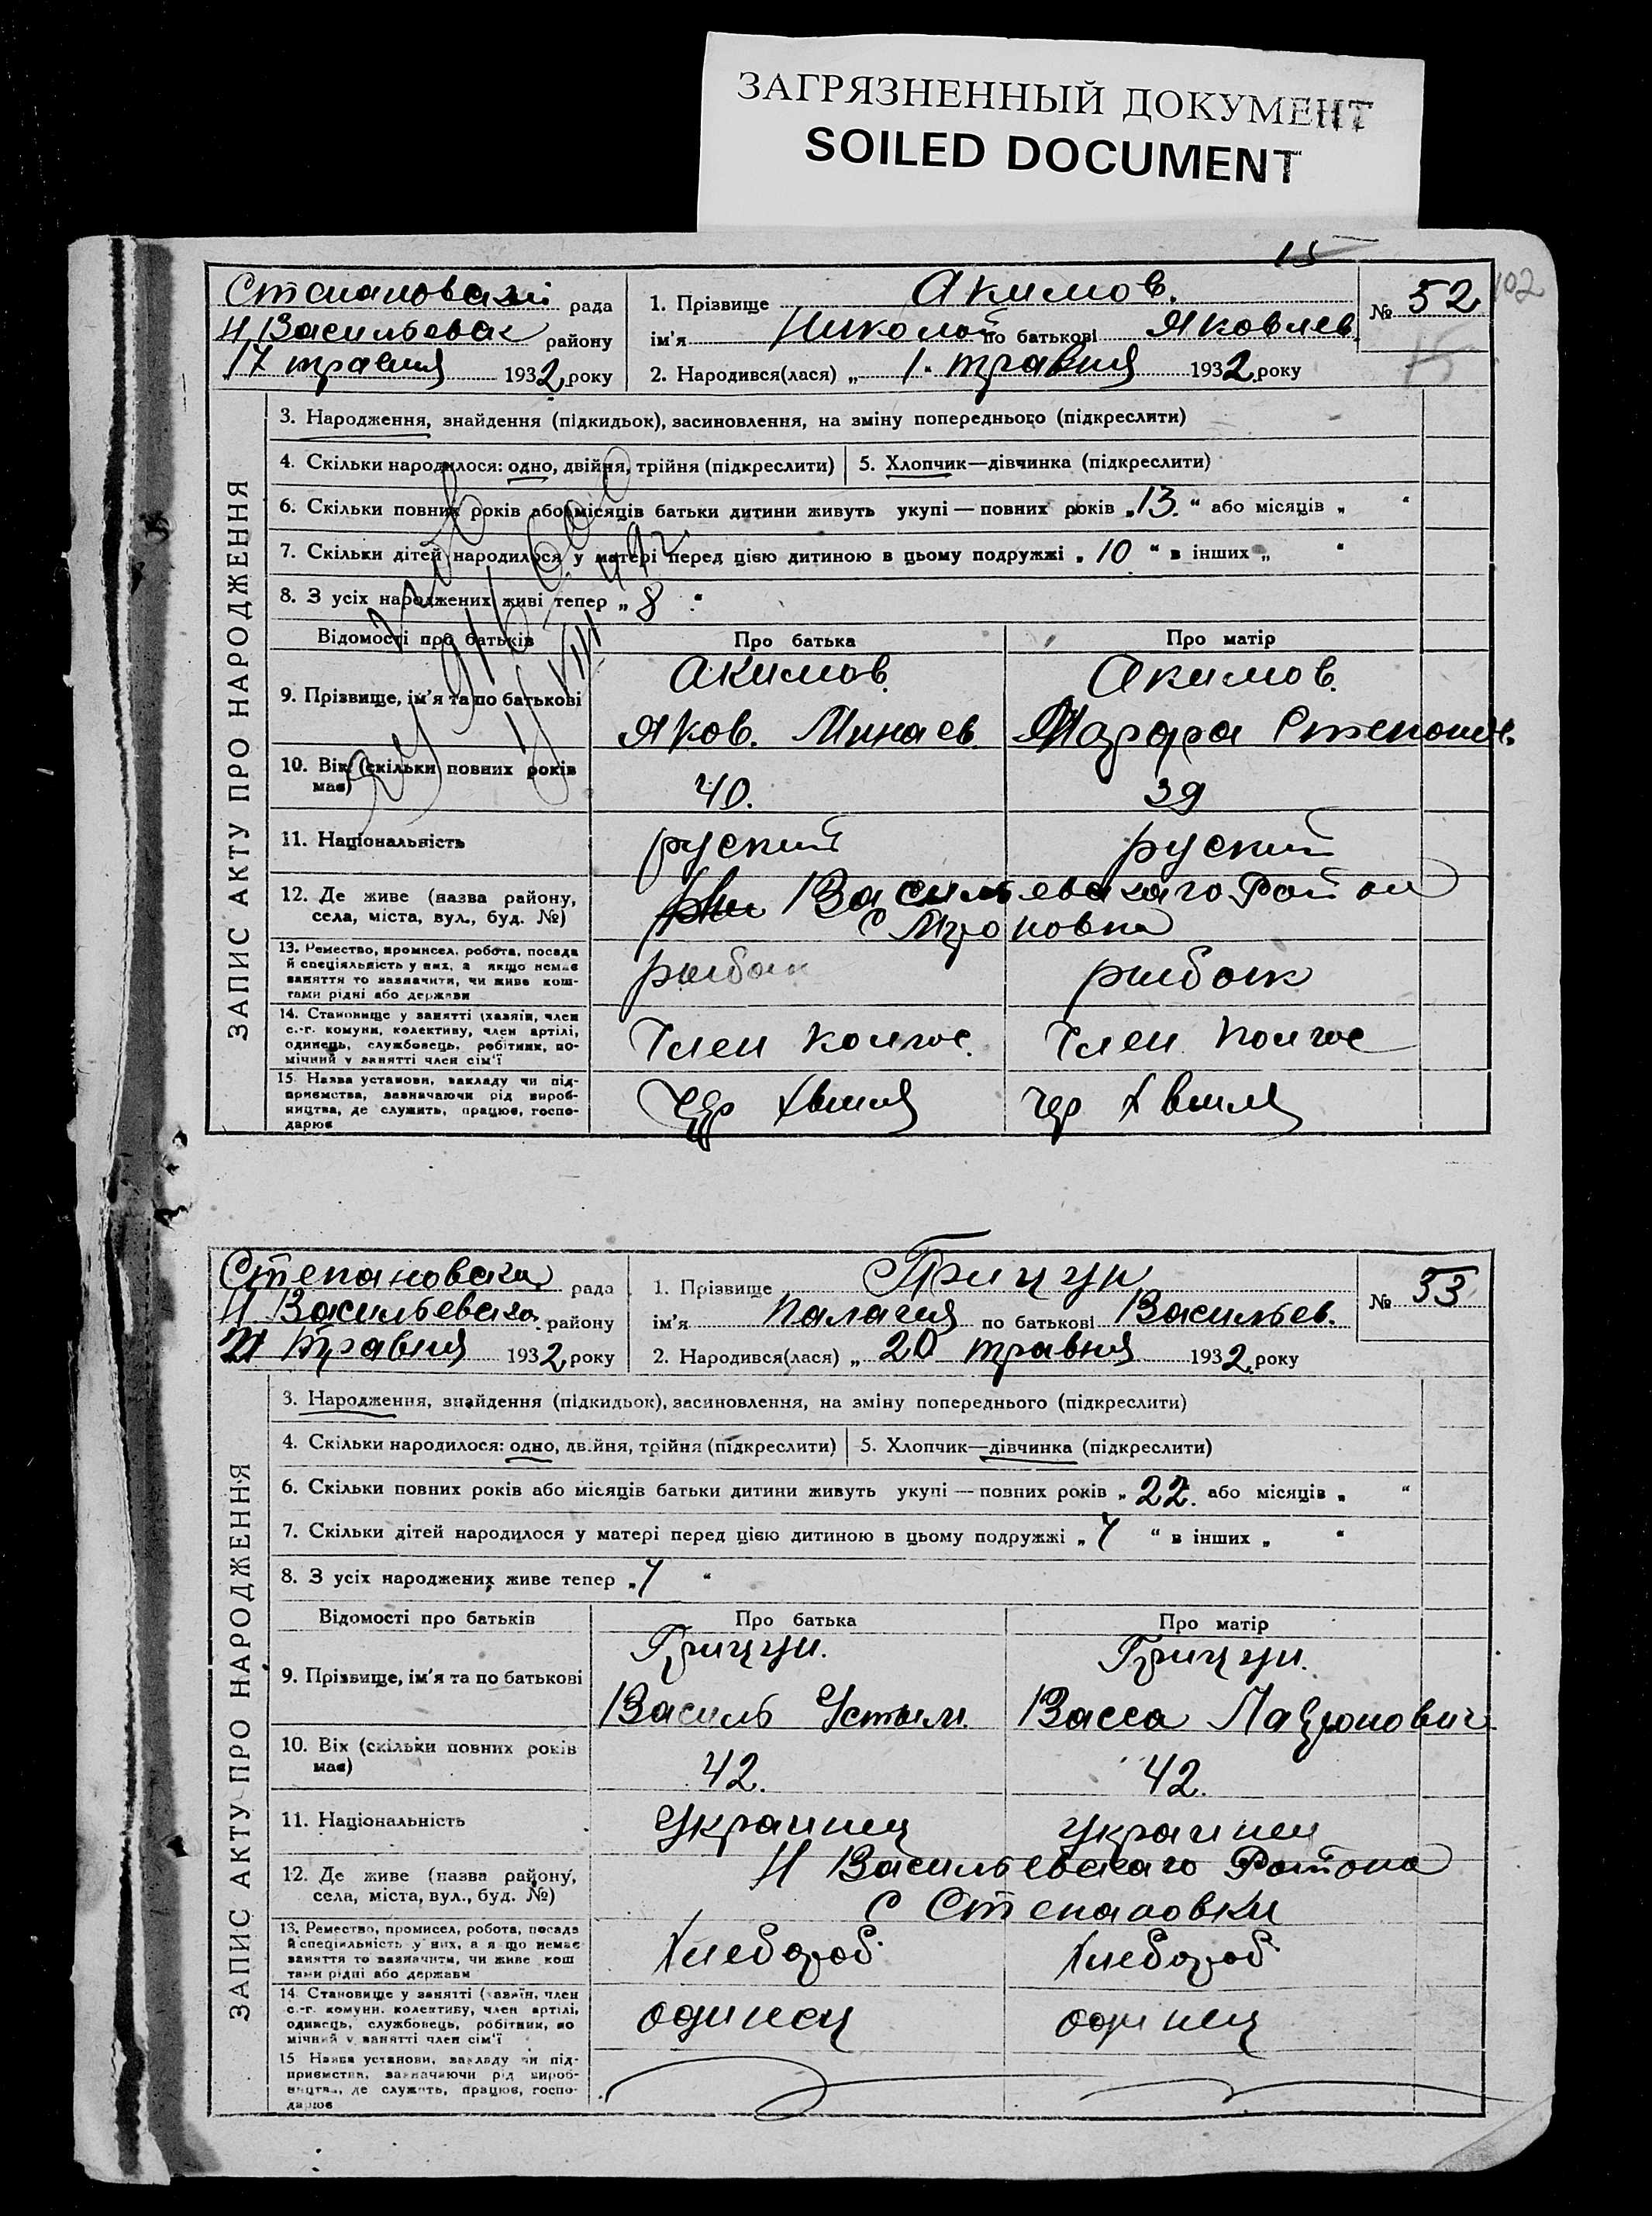 ЗАГРЯЗНЕННЫЙ ДОКУМЕНТ
SOILED DOCUMENT
15
102
Степановскай рада
Н Васильевск району
17 травня 1932 року
1. Прізвище Акимов.
ім'я Николай по батькові Яковлев
2. Народився(лася) „1" травня 1932 року
№ 52
15
ЗАПИС АКТУ ПРО НАРОДЖЕННЯ
3. Народження, знайдення (підкидьок), засиновлення, на зміну попереднього (підкреслити)
4. Скільки народилося: одно, двійня, трійня (підкреслити) 5. Хлопчик—дівчинка (підкреслити)
6. Скільки повних років або місяців батьки дитини живуть укупі — повних років „13." або місяців „ "
7. Скільки дітей народилося у матері перед цією дитиною в цьому подружжі „10" в інших „ "
8. З усіх народжених живі тепер „8"
Відомості про батьків Про батька Про матір
9. Прізвище, ім'я та по батькові
Акимов. Акимов.
Яков. Минаев.
10. Вік (скільки повних років має)
40. 39
11. Національність руский руский
12. Де живе (назва району,
села, міста, вул., буд. №)
Васильевскаго Район
с
13. Ремество, промисел, робота, посада
й спеціяльність у них, а якщо немає
заняття то зазначити, чи живе кош-
тами рідні або держави
рибак рибак
14. Становище у занятті (хазяїн, член
с.-г. комуни, колективу, член артілі,
одинець, службовець, робітник, по-
мічний у занятті член сім'ї
Член колгос. Член колгос
15. Назва установи, закладу чи під-
приємства, зазначаючи рід вироб-
ництва, де служить, працює, госпо-
дарює
Чер Хвиля Чер Хвиля
Степановска рада
Н Васильевска району
21 травня 1932 року
1. Прізвище Грицун
ім'я Палагия по батькові Васильев.
2. Народився(лася) „20 травня 1932 року
№ 53
ЗАПИС АКТУ ПРО НАРОДЖЕННЯ
3. Народження, знайдення (підкидьок), засиновлення, на зміну попереднього (підкреслити)
4. Скільки народилося: одно, двійня, трійня (підкреслити) 5. Хлопчик—дівчинка (підкреслити)
6. Скільки повних років або місяців батьки дитини живуть укупі — повних років „22. або місяців „ "
7. Скільки дітей народилося у матері перед цією дитиною в цьому подружжі „7 " в інших „ "
8. З усіх народжених живе тепер „7 "
Відомості про батьків Про батька Про матір
9. Прізвище, ім'я та по батькові
Грицун. Грицун.
Василь Устым. Васса
10. Вік (скільки повних років має)
42. 42.
11. Національність Украинец украинец
12. Де живе (назва району,
села, міста, вул., буд. №)
Н Васильевскаго Района
с Степановки
13. Ремество, промисел, робота, посада
й спеціяльність у них, а якщо немає
заняття то зазначити, чи живе кош
тами рідні або держави
Хлебороб Хлебороб
14. Становище у занятті (хазяїн, член
с.-г. комуни, колективу, член артілі,
одинець, службовець, робітник, по
мічний у занятті член сім'ї
одинец одинец
15 Назва установи, закладу чи під-
приємства, зазначаючи рід вироб-
ництва, де служить, працює, госпо-
дарює